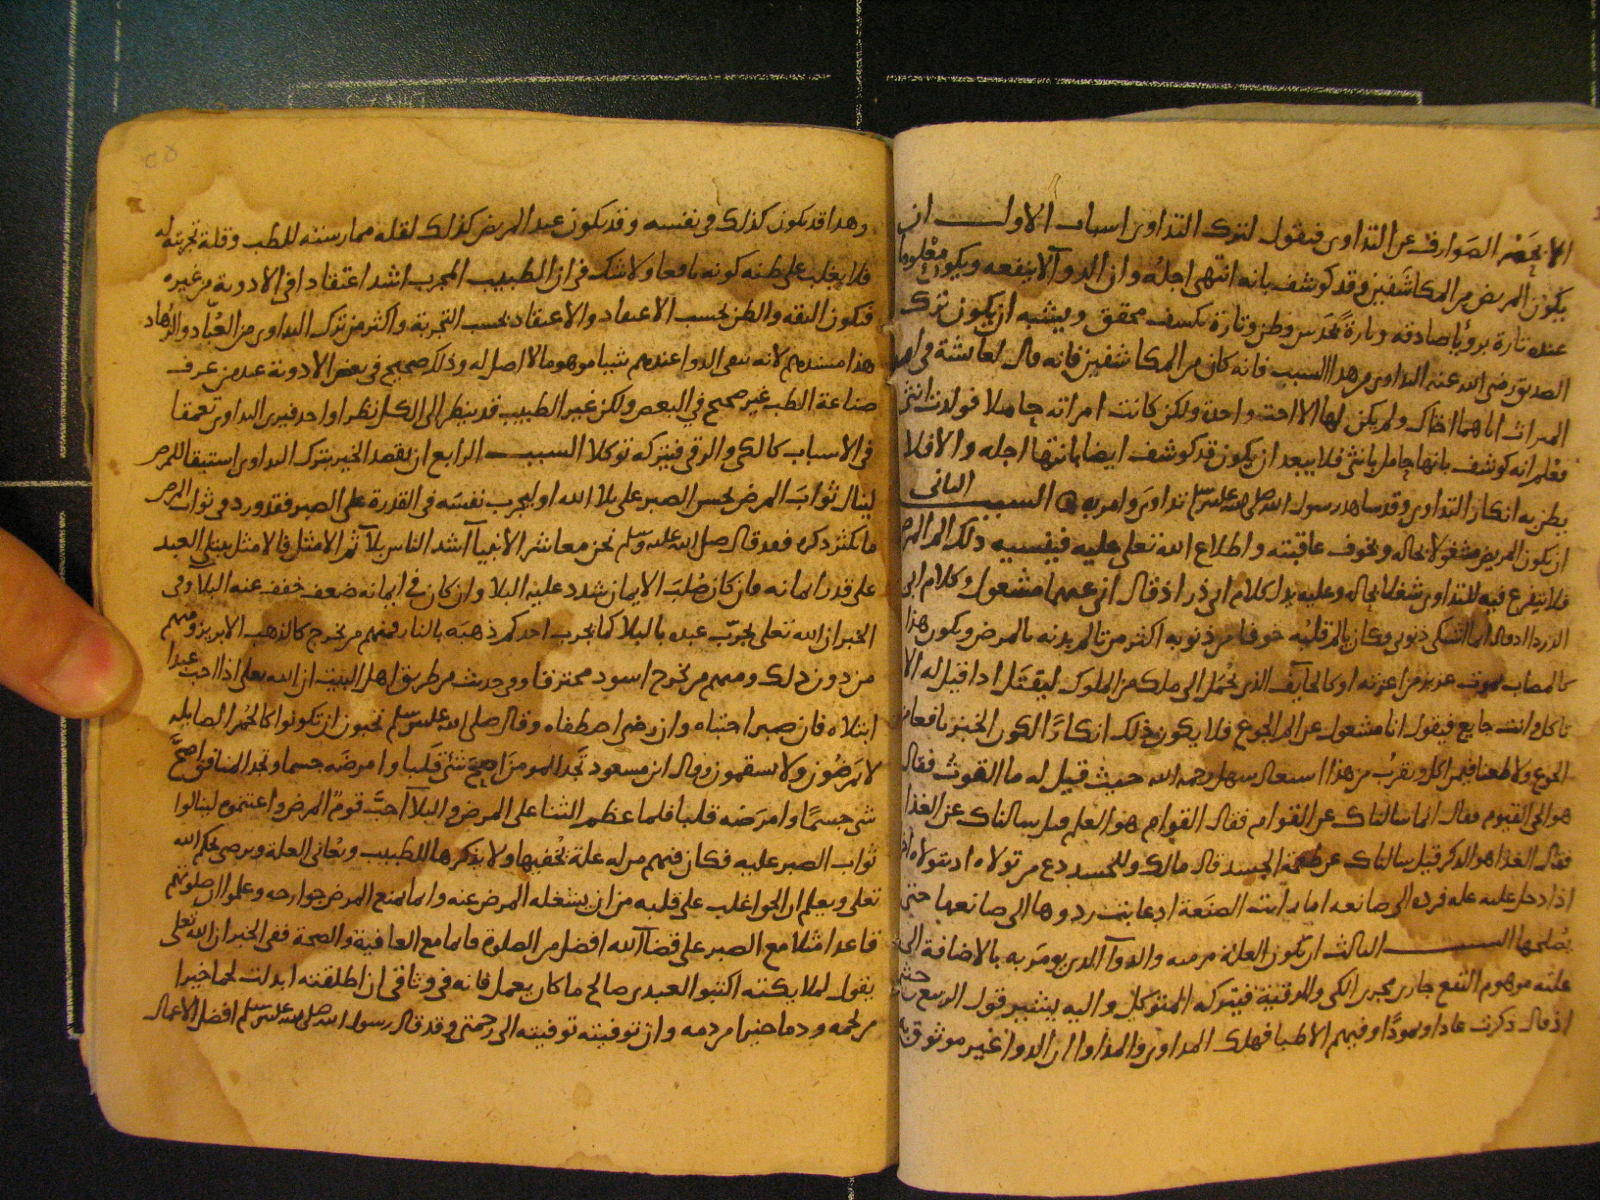 الا بحصر الصوارف عن التداوى فنقول لترك التداوى اسباب الاول ان
يكون المريض من المكاشفين وقد كوشف بانه انتهى اجله وان الدوآ لا ينفعه ويكون معلوما
عنده تارة برؤيا صادقه وتارة بحدس وظن وتارة بكشف محقق ويشبه ان يكون ترك
الصديق رضى الله عنه التداوى من هذا السبب فانه كان من المكاشفين فانه قال لعائشة فى امر
الميراث انما هما اختاك ولم يكن لها الا اخت واحدة ولكن كانت امراته حاملا فولدت انثى
فعلم انه كوشف بانها حامل بانثى فلا يبعد ان يكون قد كوشف ايضا بانتها اجله والا فلا
يظن به انكار التداوى وقد شاهد رسول الله صلى الله عليه وسلم تداوى وامر به السبب الثانى
ان يكون المريض مشغولا بحاله وبخوف عاقبته واطلاع الله تعلى عليه فينسيه ذلك الم المرض
فلا يتفرغ قلبه للتداوى شغلا بحاله وعليه يدل كلام ابى ذر اذ قال انى عنهما مشغول وكلام ابى
الدردا اذ قال انما اشتكى ذنوبى وكان تالم قلبه خوفا من ذنوبه اكثر من تالم بدنه بالمرض ويكون هذا
كالمصاب بموت عزيز من اعزته او كالخايف الذى يحمل الى ملك من الملوك ليقتل اذا قيل له الا
تاكل وانت جايع فيقول انا مشغول عن الم الجوع فلا يكون ذلك انكارًا لكون الخبز نافعا من
الجوع ولا طعنا فيمن اكل ويقرب من هذا اشتغال سهل رحمه الله حيث قيل له ما القوت فقال
هو الحى القيوم فقال انما سالناك عن القوام فقال القوام هو العلم قيل سالناك عن الغذا
فقال الغذا هو الذكر قيل سالناك عن طعمة الجسد قال مالك وللجسد دع من تولاه
اذا دخل عليه علة فرده الى صانعه اما رايت الصنعة اذا عابت ردوها الى صانعها حتى
يصلحها السبب الثالث ان تكون العلة مزمنه والدوآ الذى يومر به بالاضافة الى
علته موهوم النفع جارى مجرى الكى والرقية فيتركه المتوكل واليه يشير قول الربيع
اذ قال ذكرت عادا وثمودًا وفيهم الاطبا فهلك المداوى والمداوا ان الدوا غير موثوق به
وهذا قد يكون كذلك فى نفسه وقد يكون عند المريض كذلك لقلة ممارسته للطب وقلة تجربته له
فلا يغلب على ظنه كونه نافعا ولا شك فى ان الطبيب المجرب اشد اعتقادا فى الادوية من غيره
فتكون الثقه والظن بحسب الاعتقاد والاعتقاد بحسب التجربة واكثر من ترك التداوى من العُبّاد والزهاد
هذا مستندهم لانه يبقى الدوا عندهم شيا موهوما لا اصل له وذلك صحيح فى بعض الادوية عند من عرف
صناعة الطب غير صحيح فى البعض ولكن غير الطبيب قد ينظر الى الكل نظرا واحد فيرى التداوى تعمقا
فى الاسباب كالكى والرقى فيتركه توكلا السبب الرابع ان يقصد الخير بترك التداوى استبقا للمرض
لينال ثواب المرض بحسن الصبر على بلا الله او ليجرب نفسه فى القدرة على الصبر فقد ورد فى ثواب المرض
ما يكثر ذكره فقد قال صلى الله عليه وسلم نحن معاشر الانبيآ اشد الناس بلآ ثم الامثل فالامثل يبتلى العبد
على قدر ايمانه فان كان صلب الايمان شدد عليه البلا وان كان فى ايمانه ضعف خفف عنه البلا وفى
الخبر ان الله تعلى يجرّب عبده بالبلا كما يجرب احدكم ذهبه بالنار فمنهم من يخرج كالذهب الابريز ومنهم
من دون ذلك ومنهم من يخرج اسود محترقا وفى حديث من طريق اهل البيت ان الله تعلى اذا احب عبدا
ابتلاه فان صبر اجتباه وان رضى اصطفاه وقال صلى الله عليه وسلم تحبون ان تكونوا كالحُمر الصايله
لا تمرضون ولا تسقمون وقال ابن مسعود تجد المومن اصح شئ قلبا وامرضه جسما وتجد المنافق اصح
شى جسمًا وامرضه قلبا فلما عظم الثنا على المرض والبلآ احبّ قومٌ المرض واغتنموه لينالوا
ثواب الصبر عليه فكان فيهم من له علة يخفيها ولا يذكرها للطبيب ويعانى العلة ويرضى بحكم الله
تعلى ويعلم ان الحق اغلب على قلبه من ان يشغله المرض عنه وانما يمنع المرض جوارحه وعلموا ان صلوتهم
قاعدا مثلا مع الصبر على قضآ الله افضل من الصلوة قايما مع العافية والصحة ففى الخبر ان الله تعلى
يقول لملايكته اكتبوا لعبدى صالح ما كان يعمل فانه فى وثاقى ان اطلقته ابدلت لحما خيرا
من لحمه ودما خيرا من دمه وان توفيته توفيته الى رحمتى وقد قال رسول الله صلى الله عليه وسلم افضل الاعمال